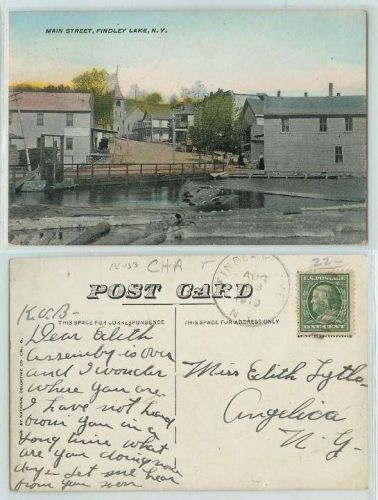 MAIN STREET, FINDLEY LAKE, N.Y.
PC-133
CHA
22-
POST CARD
FINDLEY LAKE
AUG
1910
N.
K.O.B-
THIS SPACE FOR CORRESPONDENCE
THIS SPACE FOR ADDRESS ONLY
ONE CENT
Dear Edith
Assembly is over
and I wonder
where you are.
I have not heard
from you in a
long time what
are you doing now
days - Let me hear
from you soon
Miss Edith Lytle
Angelica
N. Y.